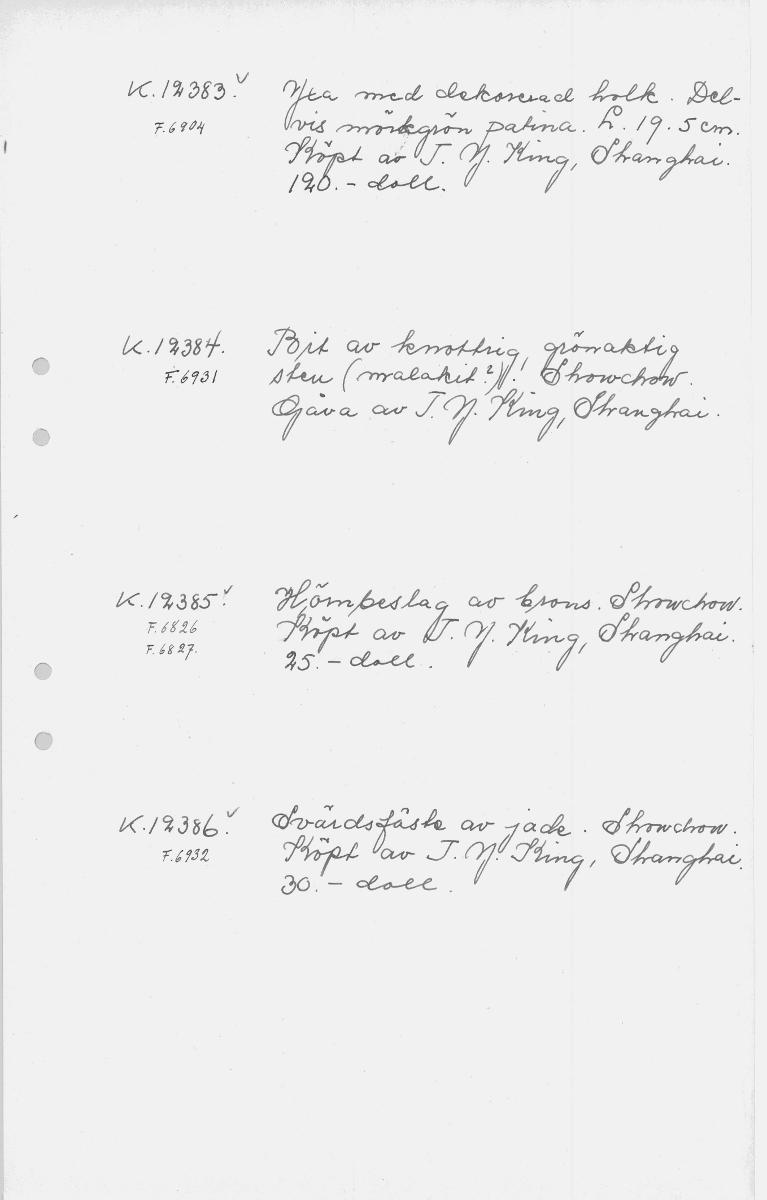 K.12383. Yxa med dekorerad holk. Del-
F.6904 vis mörkgrön patina. L. 19.5 cm.
Köpt av T. Y. King, Shanghai.
120.- doll.
K.12384. Bit av knottrig, grönaktig
F.6931 sten (malakit?)! Showchow.
Gåva av T. Y. King, Shanghai.
K.12385. Hörnbeslag av brons. Showchow.
F.6826 Köpt av T. Y. King, Shanghai.
F.6827. 25.- doll.
K.12386. Svärdsfäste av jade. Showchow.
F.6932 Köpt av T. Y. King, Shanghai.
30.- doll.